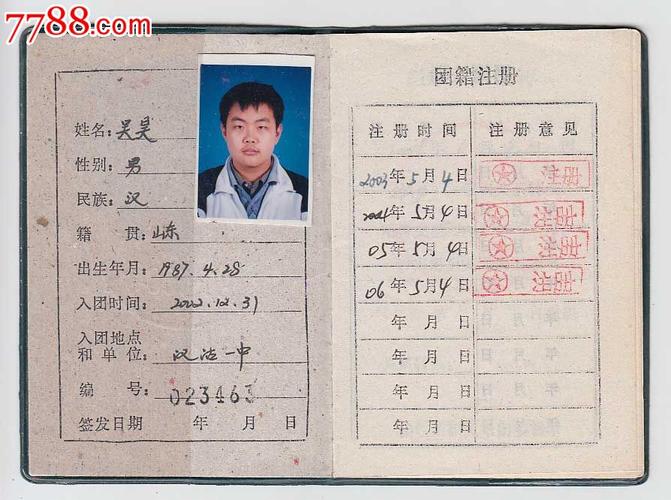 7788.com
姓名：吴昊
性别：男
民族：汉
籍 贯：山东
出生年月：1987.4.28
入团时间：2002.12.31
入团地点
和单位：汉沽一中
编 号：023463
签发日期 年 月 日
团籍注册
注册时间 注册意见
2003年5月4日
2004年5月4日
05年5月4日
06年5月4日
年 月 日
年 月 日
年 月 日
年 月 日